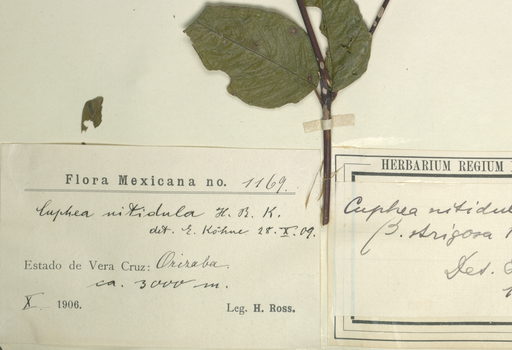 Flora Mexicana no. 1169.
Cuphea nitidula H. B. K.
det. E. Köhne 28.X.09.
Estado de Vera Cruz: Orizaba.
ca. 3000 m.
X 1906. Leg. H. Ross.
HERBARIUM REGIUM
Cuphea nitidul
β. strigosa
Det.